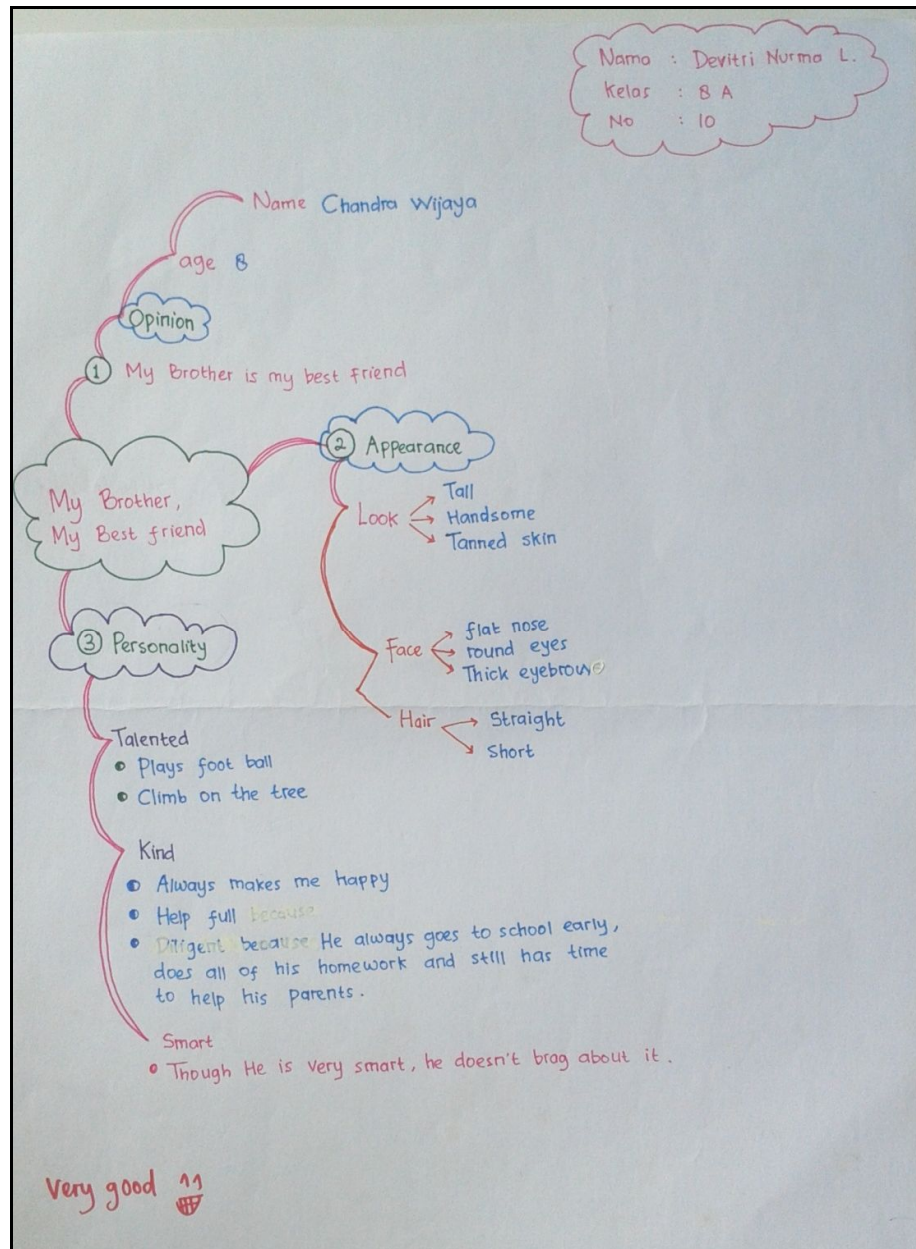 Nama : Devitri Nurma L.
Kelas : 8 A
No : 10
Name Chandra Wijaya
age 8
Opinion
1 My Brother is my best friend
My Brother,
My Best friend
2 Appearance
Look
Tall
Handsome
Tanned skin
Face
flat nose
round eyes
Thick eyebrow
Hair
Straight
Short
3 Personality
Talented
• Plays foot ball
• Climb on the tree
Kind
• Always makes me happy
• Help full because
• Diligent because He always goes to school early,
does all of his homework and still has time
to help his parents.
Smart
• Though He is very smart, he doesn't brag about it.
Very good